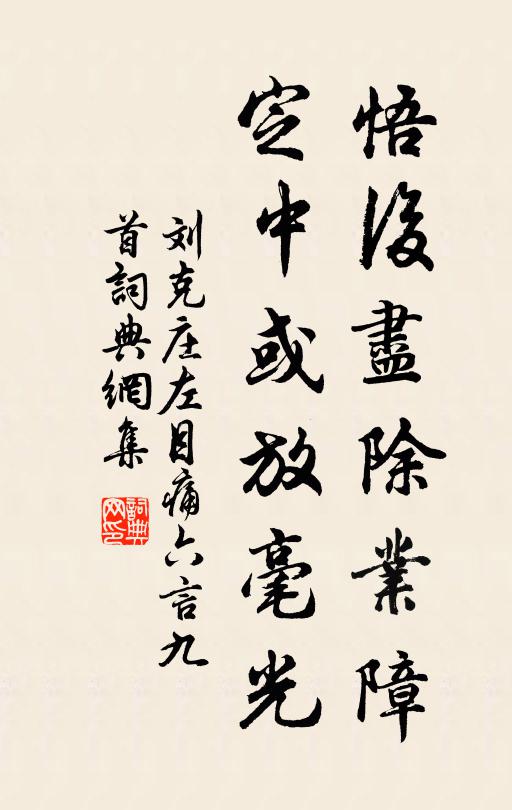 悟後盡除業障
定中或放毫光
刘克庄左目痛六言九
首詞典網集
詞典網印